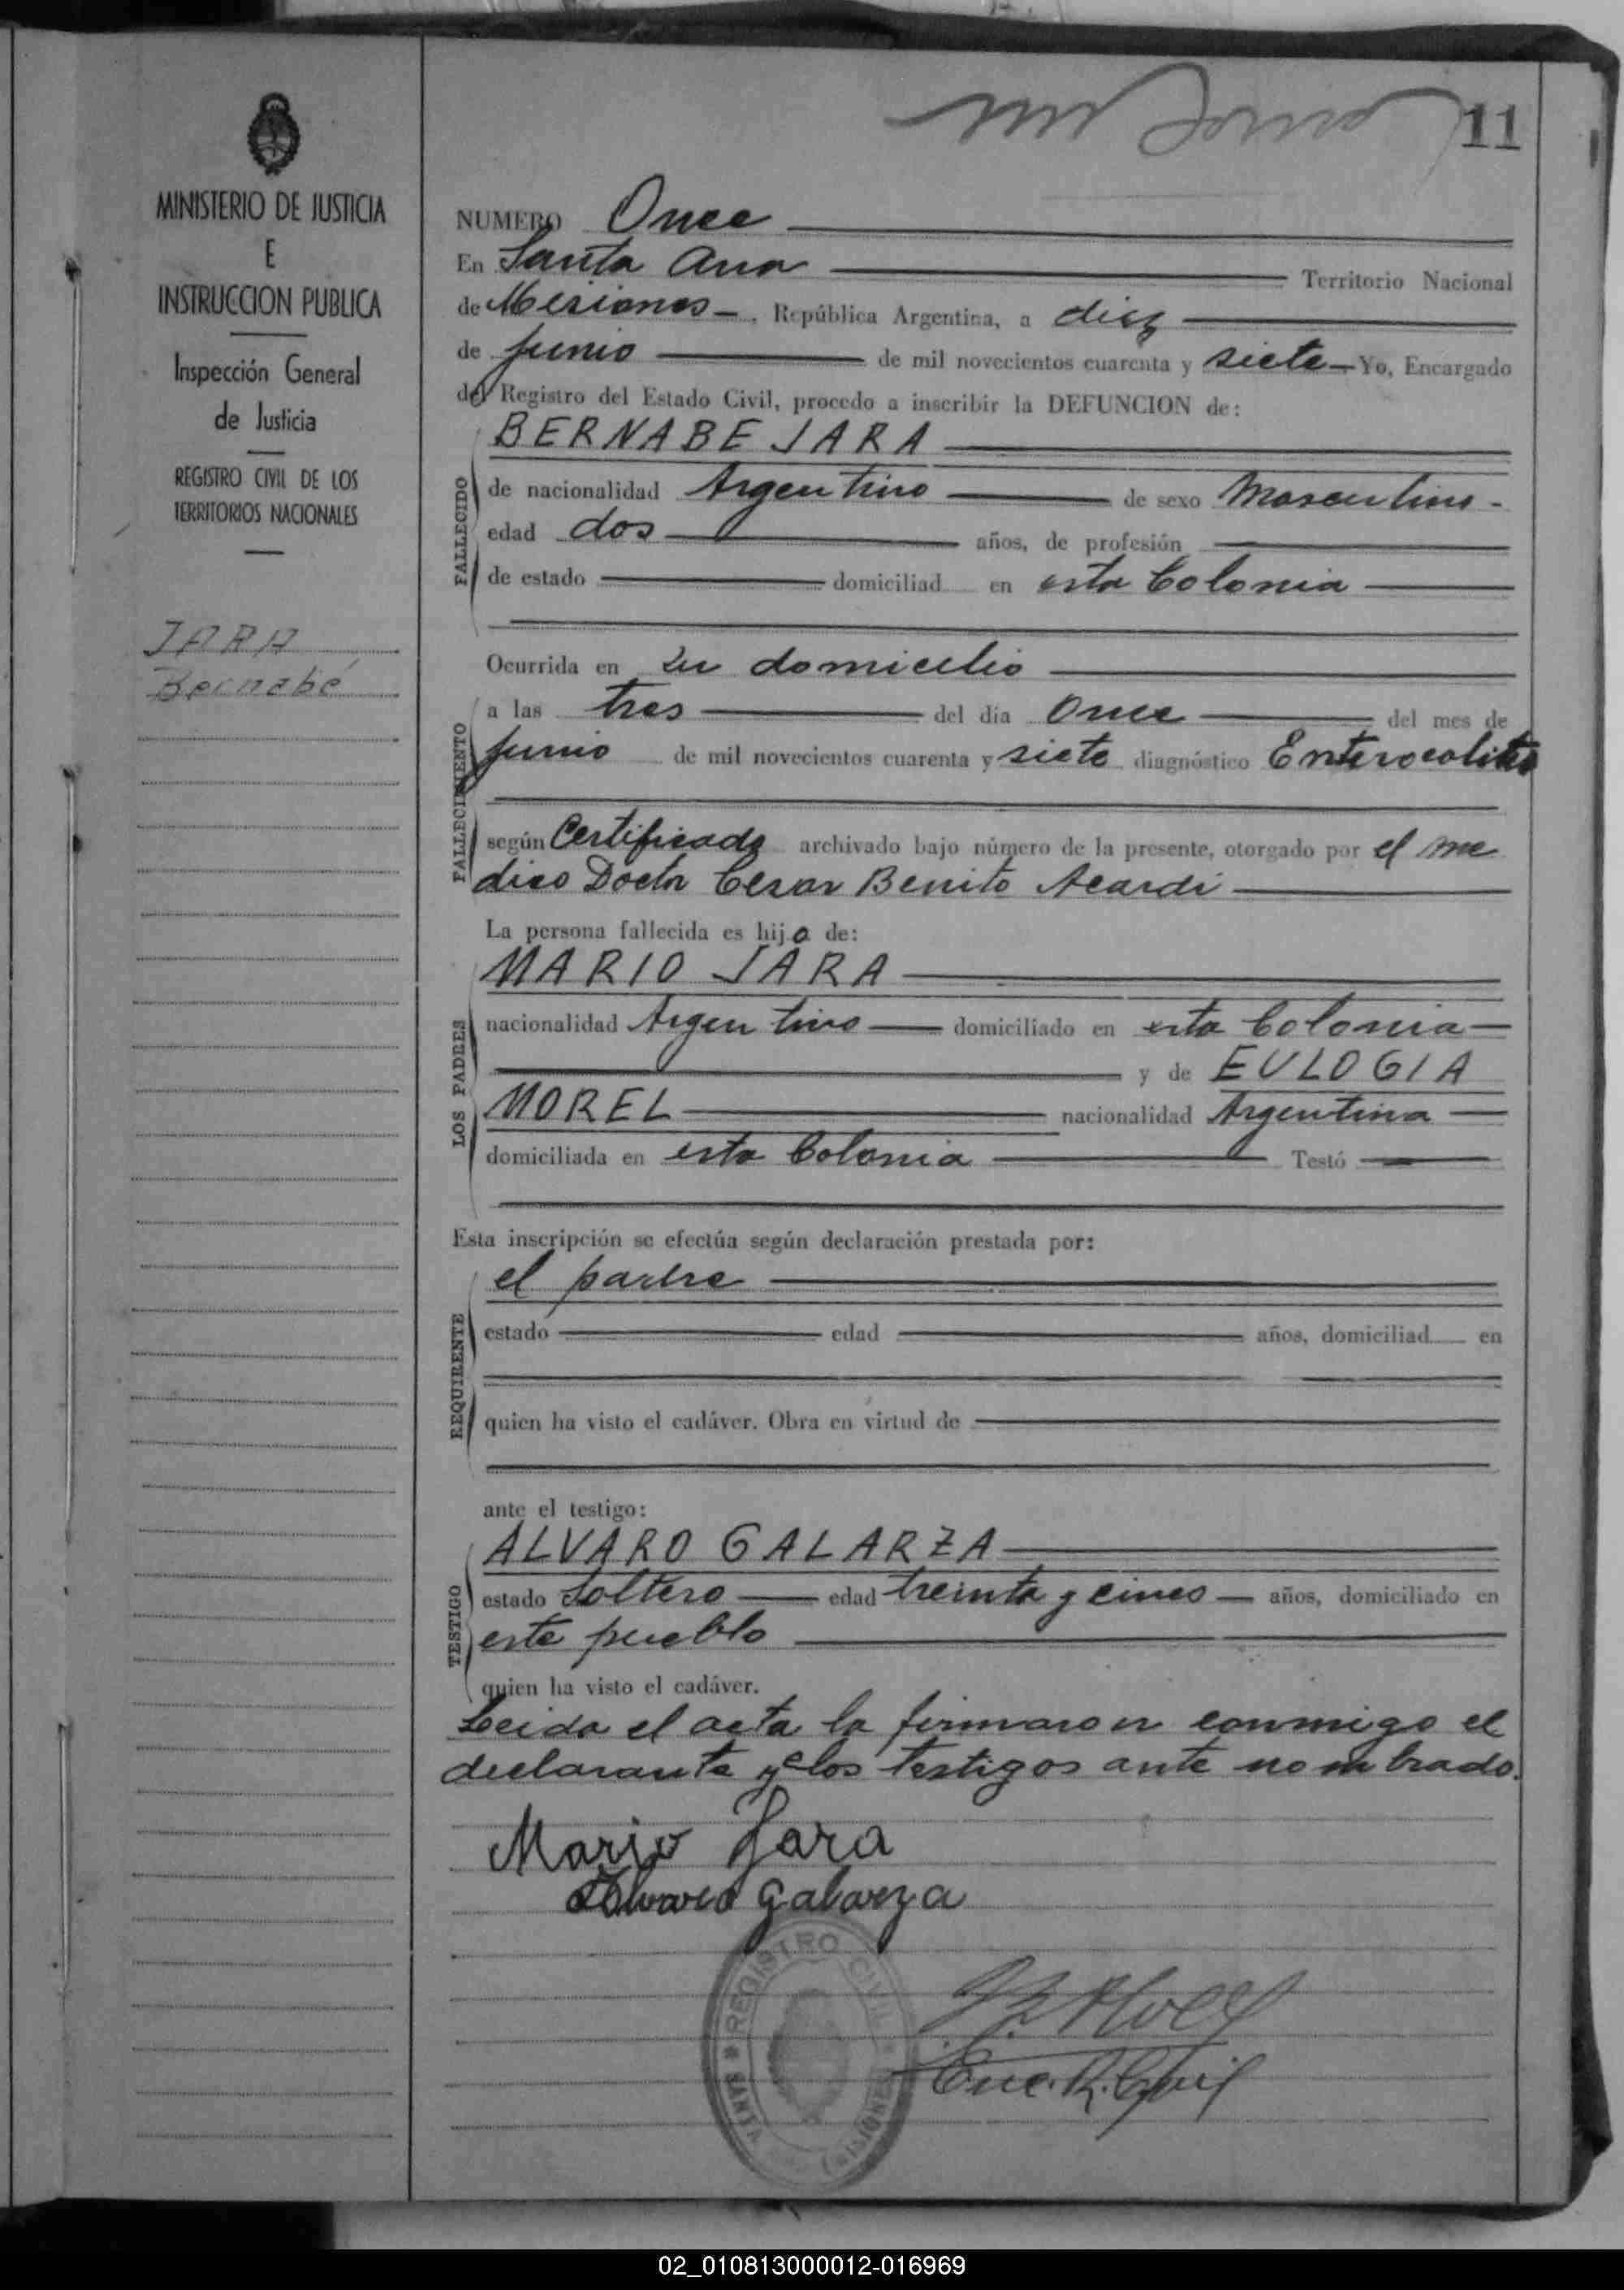 11
MINISTERIO DE JUSTICIA
E
INSTRUCCION PUBLICA
Inspección General
de Justicia
REGISTRO CIVIL DE LOS
TERRITORIOS NACIONALES
JARA
Bernabé
NUMERO Once
En Santa Ana Territorio Nacional
de Misiones, República Argentina, a diez
de junio de mil novecientos cuarenta y siete Yo, Encargado
del Registro del Estado Civil, procedo a inscribir la DEFUNCION de:
BERNABE JARA
FALLECIDO
de nacionalidad Argentino de sexo Masculino
edad dos años, de profesión
de estado domiciliad en esta Colonia
Ocurrida en su domicilio
FALLECIMIENTO
a las tres del día Once del mes de
junio de mil novecientos cuarenta y siete diagnóstico Enterocolitis
según Certificado archivado bajo número de la presente, otorgado por el me
dico Doctor Cesar Benito Acardi
La persona fallecida es hijo de:
LOS PADRES
MARIO JARA
nacionalidad Argentino domiciliado en esta Colonia
y de EULOGIA
MOREL nacionalidad Argentina
domiciliada en esta Colonia Testó
Esta inscripción se efectúa según declaración prestada por:
REQUIRENTE
el padre
estado edad años, domiciliad en
quien ha visto el cadáver. Obra en virtud de
ante el testigo:
TESTIGO
ALVARO GALARZA
estado Soltero edad treinta y cinco años, domiciliado en
este pueblo
quien ha visto el cadáver.
Leida el acta la firmaron conmigo el
declarante y los testigos ante nombrado.
Mario Jara
Alvaro Galarza
REGISTRO CIVIL
SANTA MISIONES
Enc. R. Civil
02_010813000012-016969